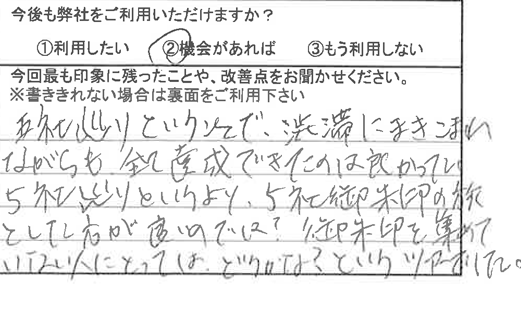 今後も弊社をご利用いただけますか?
①利用したい ②機会があれば ③もう利用しない
今回最も印象に残ったことや、改善点をお聞かせください。
※書ききれない場合は裏面をご利用下さい
五社巡りということで、渋滞にまきこまれ
ながらも、全て達成できたのは良かってい
5社巡りというより、5社御朱印の旅
とした方が良いのでは? 御朱印を集めて
いない人にとっては、どうかな?というツアーでした。